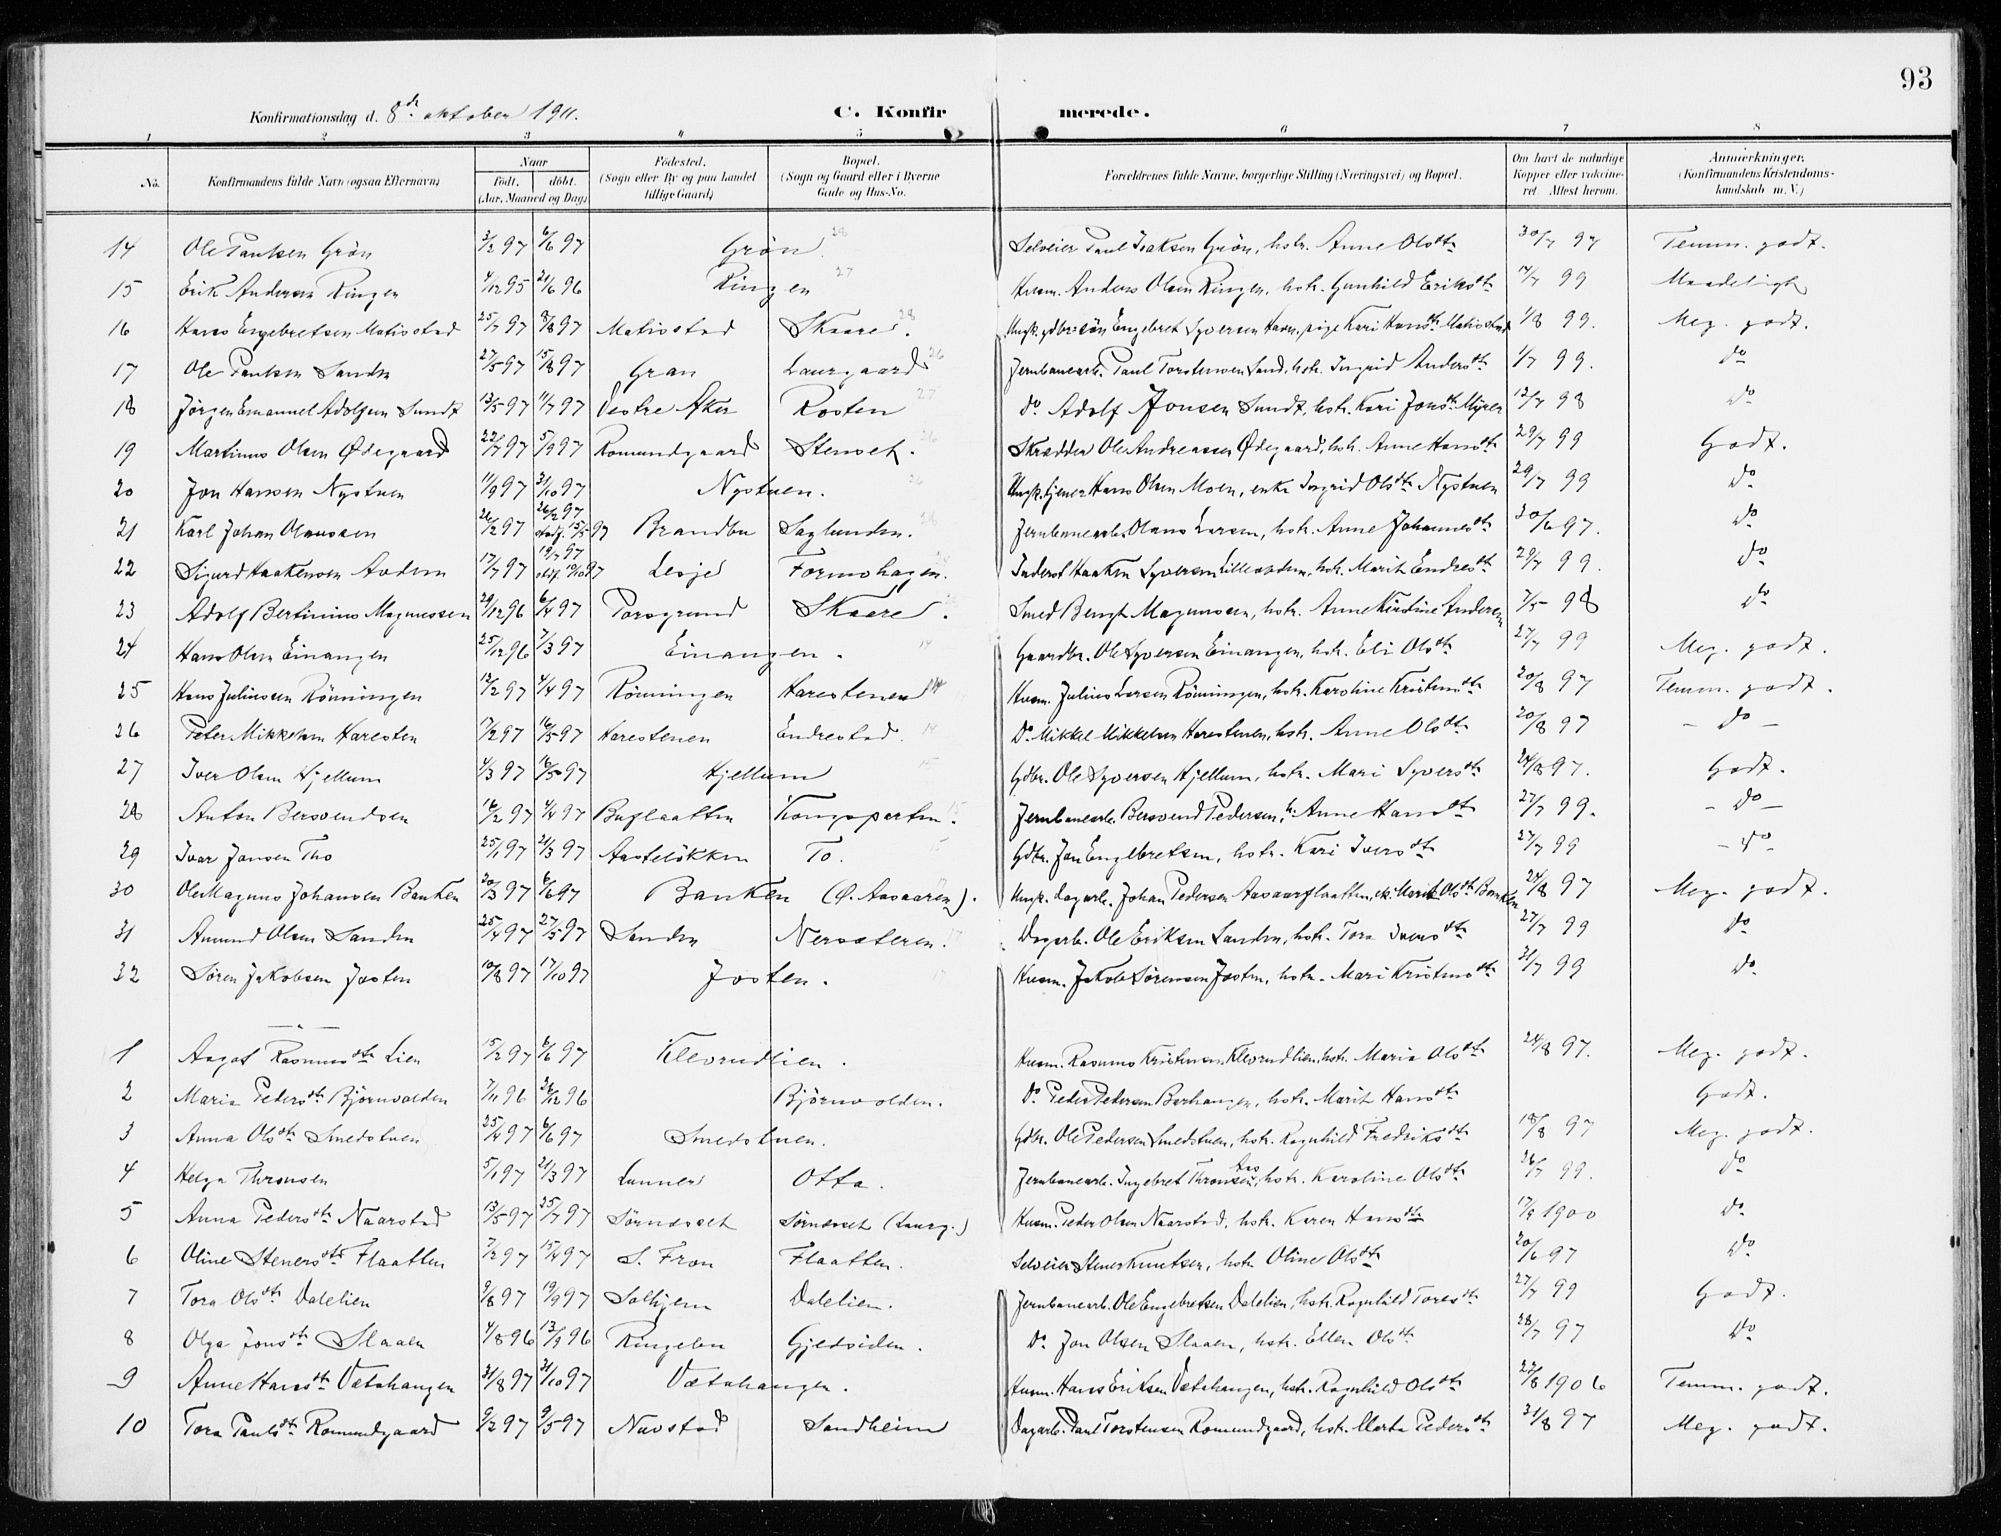 93
Konfirmationsdag d. 8de oktober 1911. C. Konfirmerede.
1 2 3 4 5 6 7 8
No. Konfirmandens fulde Navn (ogsaa Efternavn) Naar født. døbt. (Aar, Maaned og Dag) Fødested. (Sogn eller By og paa Landet tillige Gaard) Bopæl. (Sogn og Gaard eller i Byerne Gade og Hus-No. Forældrenes fulde Navne, borgerlige Stilling (Næringsvei) og Bopæl. Om havt de naturlige Kopper eller vaccineret. Attest herom. Anmærkninger. (Konfirmandens Kristendomskundskab m. V.)
14 Ole Paulsen Grön 3/2 97 6/6 97 Grön. 28 Selveier Paul Isaksen Grön, hstr. Anne Olsdtr 30/7 97 Temm. godt.
15 Erik Andersen Ringen 4/12 95 21/6 96 Ringen 27 Husm. Anders Olsen Ringen, hstr. Gunhild Eriksdtr 17/7 99 Maadeligt
16 Hans Engebretsen Matisstad 25/7 97 8/8 97 Matisstad Skaare. 28 Ungk. gdbr.søn Engebret Syversen Havn, pige Kari Hansdtr Matisstad 1/8 99. Meg. godt.
17 Ole Paulsen Sanden 27/5 97 15/8 97 Gran Laurgaard 26 Jernbanearb. Paul Torstensen Sand, hstr. Ingrid Andersdtr 1/7 99. do
18 Jörgen Emanuel Adolfsen Sundt 13/5 97 11/7 97 Vestre Aker Rosten do. Adolf Jonsen Sundt, hstr. Kari Jonsdtr Myren 12/7 98 do
19 Martinus Olsen Ødegaard 22/7 97 5/9 97 Romundgaard Stenset. 26 Skrædder Ole Andreassen Ødegaard, hstr. Anne Hansdtr 29/7 99 Godt.
20 Jon Hansen Nystuen 11/9 97 31/10 97 Nystuen. Ungk. tjener Hans Olsen Moen, enke Ingrid Olsdtr Nystuen 29/7 99 do
21 Karl Johan Olaussen 26/2 97 26/2 97 stadf. 15/5 97 Brandbu Saglunden. Jernbanearb. Olaus Larsen, hstr. Anne Johannesdtr 30/6 97. do
22 Sigurd Haakensen Avdem 17/7 97 19/7 97 stdf. 10/10 97 Lesje Formohagen. Inderst Haaken Syversen Lilleavdem, hstr. Marit Endresdtr 29/7 99. do
23 Adolf Bertinius Magnussen 29/12 96 6/4 97 Porsgrund Skaare. Smed Bengt Magnussen, hstr. Anne Kirstine Andersen 7/5 98 do
24 Hans Olsen Einangen 25/12 96 7/3 97 Einangen. 14 Gaardbr. Ole Syversen Einangen, hstr. Eli Olsdtr 27/7 99 Meg. godt.
25 Hans Juliussen Rönningen 13/2 97 4/4 97 Rönningen Harestenen 14 Husm. Julius Larsen Rönningen, hstr. Karoline Kristensdtr 20/8 97 Temm. godt.
26 Peter Mikkelsen Haresten 17/2 97 16/5 97 Harestenen Endrestad. 14 Do Mikkel Mikkelsen Harestenen, hstr. Anne Olsdtr 20/8 97 - do -
27 Iver Olsen Hjellum 4/3 97 16/5 97 Hjellum 15 Gdbr. Ole Syversen Hjellum, hstr. Mari Syversdtr 24/8 97. Godt.
28 Anton Bersvendsen 14/2 97 4/4 97 Buflaatten Kongsporten. 15 Jernbanearb. Bersvend Pedersen, h. Anne Hansdtr 27/7 99. - do -
29 Ivar Jonsen Tho 25/1 97 21/3 97 Aasteløkken To. 15 Gdbr. Jon Engebretsen, hstr. Kari Iversdtr 27/7 99 - do -
30 Ole Magnus Johansen Banken 20/3 97 6/6 97 Banken (Ø. Aasaaren). 17 Ungk. dagarb. Johan Pedersen Aasaarflaatten, Marit Olsdtr Banken 24/8 97 Meg. godt.
31 Amund Olsen Sanden 25/4 97 27/5 97 Sanden Nersæteren. 17 Dagarb. Ole Eriksen Sanden, hstr. Tora Iversdtr 27/7 99 do
32 Søren Jakobsen Josten 10/8 97 17/10 97 Josten. 17 Husm. Jakob Sørensen Josten, hstr. Mari Kristensdtr 31/7 99 do
1 Aagot Rasmusdtr Lien 15/2 97 6/6 97 Klevrudlien. Husm. Rasmus Kristensen Klevrudlien, hstr. Maria Olsdtr 24/8 97. Meg. godt.
2 Maria Pedersdtr Björnvolden 7/11 96 26/12 96 Björnvolden. Do Peder Pedersen Berhaugen, hstr. Marit Hansdtr Godt.
3 Anna Olsdtr Smedstuen 25/4 97 6/6 97 Smedstuen. Gdbr. Ole Pedersen Smedstuen, hstr. Ragnhild Fredriksdtr 18/8 97 Meg. godt.
4 Helga Thronsen 5/1 97 21/3 97 Lunner Otta. Jernbanearb. Ingebret Thronsen Aas, hstr. Karoline Olsdtr 26/7 99. do
5 Anna Pedersdtr Naarstad 13/5 97 25/7 97 Sørnesset Sørnesset (Laurg.) Husm. Peder Olsen Naarstad, hstr. Karen Hansdtr 17/9 1900 do
6 Oline Stenersdtr Flaatten 7/2 97 15/4 97 S. Fron Flaatten. Selveier Stener Knutsen, hstr Oline Olsdtr 20/6 97 do
7 Tora Olsdtr Dalelien 9/8 97 19/9 97 Solhjem Dalelien. Jernbanearb. Ole Engebretsen Dalelien, hstr. Ragnhild Toresdtr 27/7 99 Godt.
8 Olga Jonsdtr Slaaen 4/8 96 13/9 96 Ringebu Gjedsiden. Do Jon Olsen Slaaen, hstr. Ellen Olsdtr 28/7 97 Do
9 Anne Hansdtr Vætahaugen 31/8 97 31/10 97 Vætahaugen. Husm. Hans Eriksen Vætahaugen, hstr. Ragnhild Olsdtr 22/8 1906 Temm. godt.
10 Tora Paulsdtr Romundgaard 9/2 97 9/5 97 Nuvstad Sandheim Dagarb. Paul Torstensen Romundgaard, hstr. Marta Pedersdtr 31/8 97 Meg. godt.